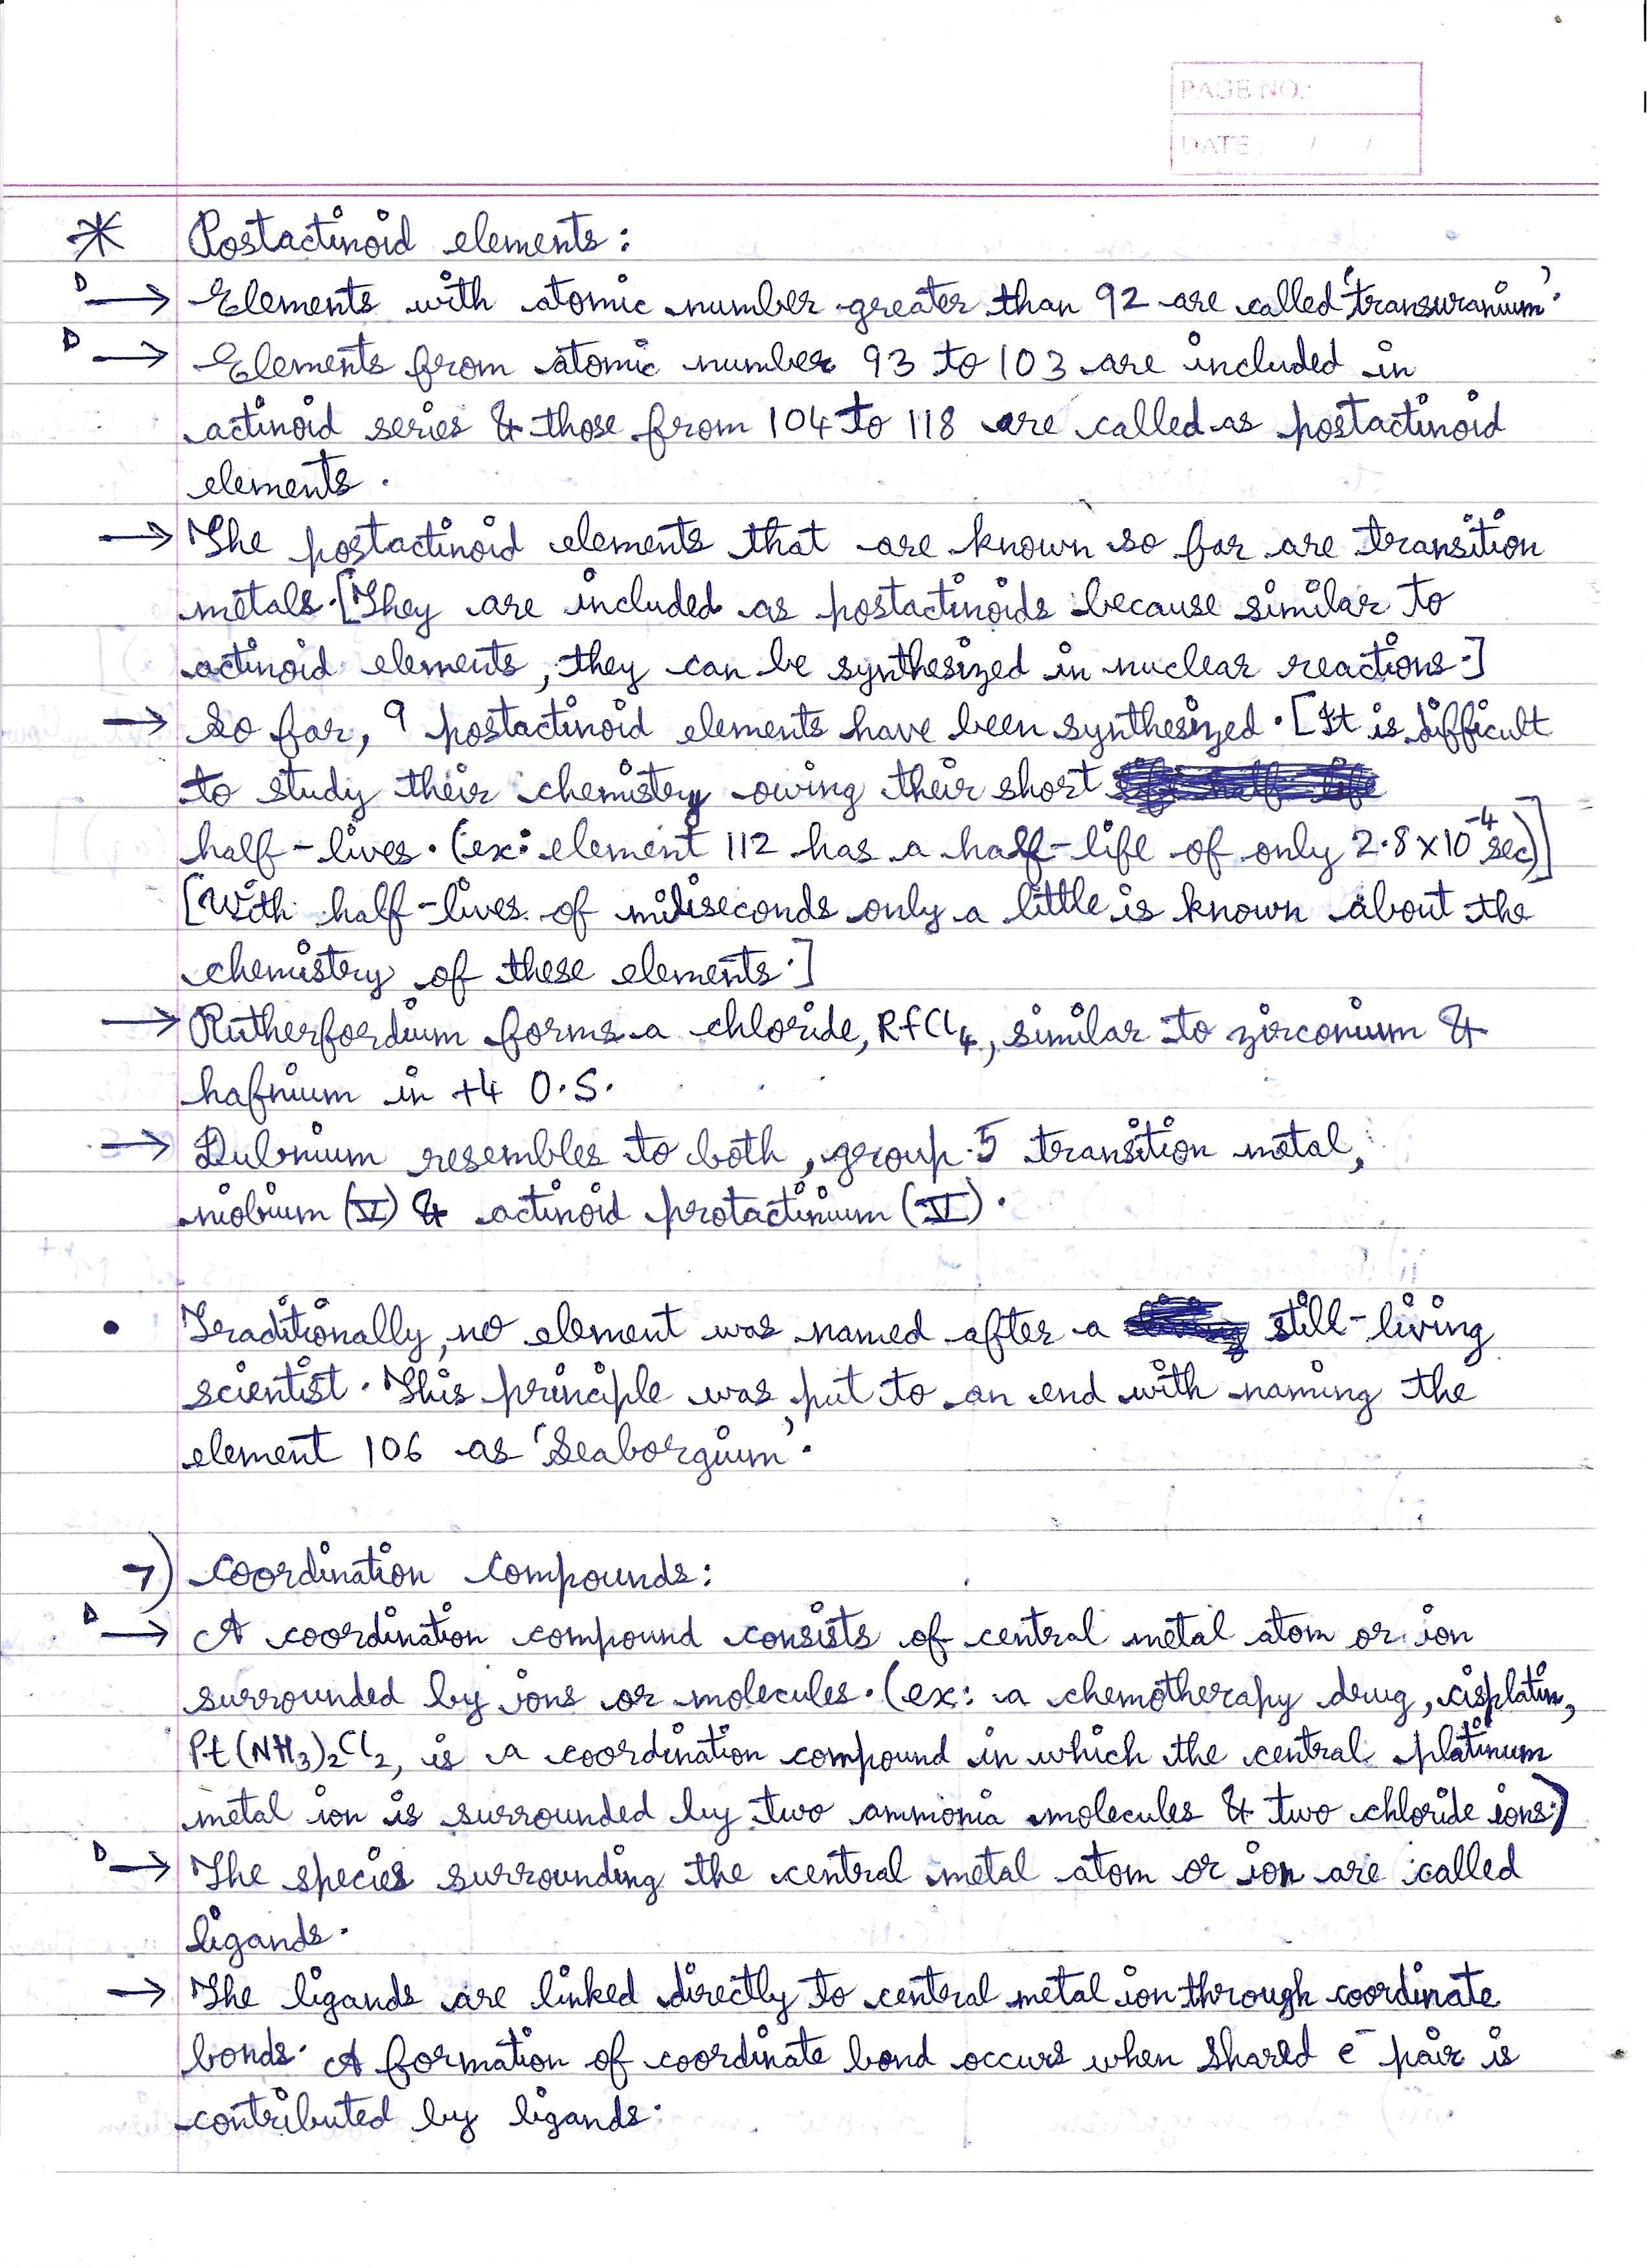 PAGE NO.:
DATE: / /
* Postactinoid elements:
D → Elements with atomic number greater than 92 are called 'transuranium'.
D → Elements from atomic number 93 to 103 are included in
actinoid series & those from 104 to 118 are called as postactinoid
elements.
→ The postactinoid elements that are known so far are transition
metals. [They are included as postactinoids because similar to
actinoid elements, they can be synthesized in nuclear reactions.]
→ So far, 9 postactinoid elements have been synthesized. [It is difficult
to study their chemistry owing their short
half-lives. (ex: element 112 has a half-life of only 2.8 x 10⁻⁴ sec)]
[With half-lives of miliseconds only a little is known about the
chemistry of these elements.]
→ Rutherfordium forms a chloride, RfCl₄, similar to zirconium &
hafnium in +4 O.S.
→ Dubnium resembles to both, group 5 transition metal,
niobium (V) & actinoid protactinium (V).
• Traditionally, no element was named after a still-living
scientist. This principle was put to an end with naming the
element 106 as 'Seaborgium'.
7) Coordination Compounds:
D → A coordination compound consists of central metal atom or ion
surrounded by ions or molecules. (ex: a chemotherapy drug, cisplatin,
Pt(NH₃)₂Cl₂, is a coordination compound in which the central platinum
metal ion is surrounded by two ammonia molecules & two chloride ions.)
D → The species surrounding the central metal atom or ion are called
ligands.
→ The ligands are linked directly to central metal ion through coordinate
bonds. A formation of coordinate bond occurs when shared e⁻ pair is
contributed by ligands.